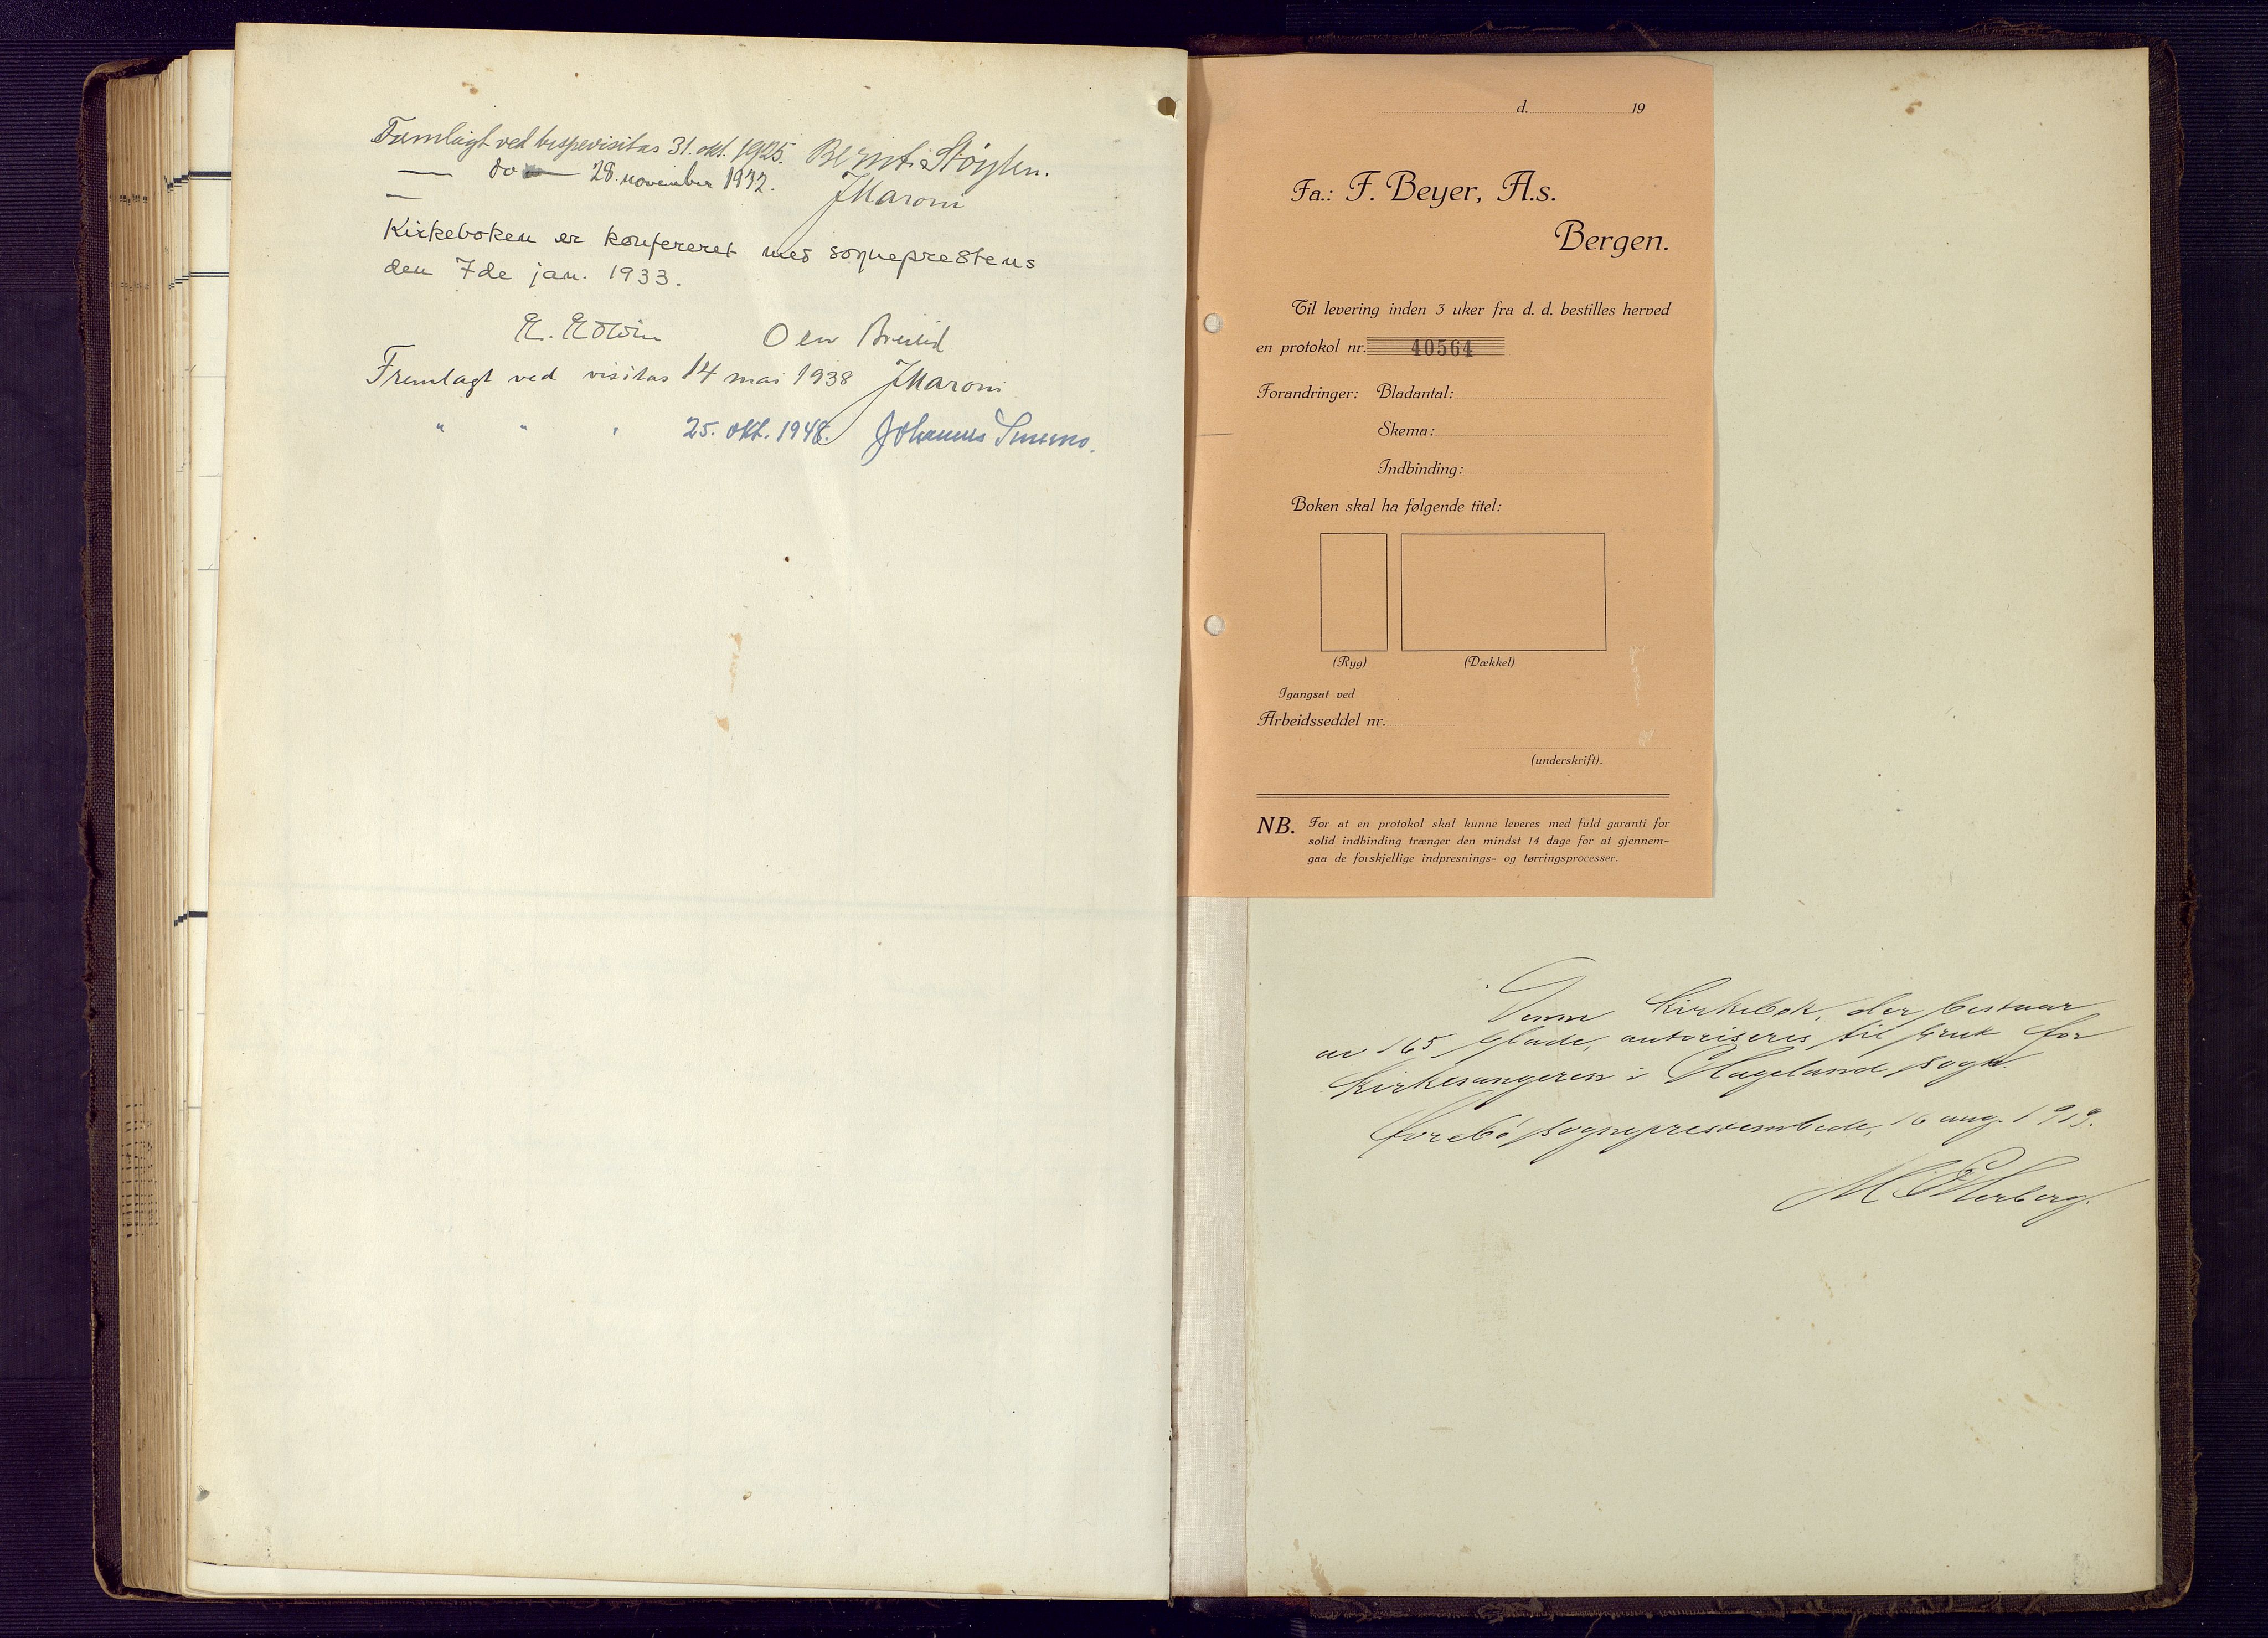 Framlagt ved bispevisitas 31. okt. 1925. Bernt Støylen.
— do — 28. november 1932. JMaroni
—
Kirkeboken er konfereret med sogneprestens
den 7de jan. 1933.
Olav Breilid
Fremlagt ved visitas 14 mai 1938 JMaroni
" " " 25. okt. 1948. Johannes Smemo.
d. 19
Fa.: F. Beyer, A.s.
Bergen.
Til levering inden 3 uker fra d. d. bestilles herved
en protokol nr. 40564
Forandringer: Bladantal:
Skema:
Indbinding:
Boken skal ha følgende titel:
(Ryg) (Dækkel)
Igangsat ved
Arbeidsseddel nr.
(underskrift).
NB. For at en protokol skal kunne leveres med fuld garanti for
solid indbinding trænger den mindst 14 dage for at gjennem-
gaa de forskjellige indpresnings- og tørringsprocesser.
Denne kirkebok, der bestaar
av 165 blade, autoriseres til bruk for
kirkesangeren i Hægeland sogn.
sogneprestembede, 16 aug. 1919.